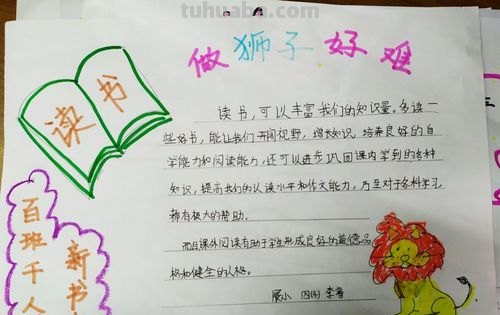 tuhuaba.com
做狮子好难
读书
读书，可以丰富我们的知识量。多读一
些好书，能让我们开阔视野，增长知识，培养良好的自
学能力和阅读能力，还可以进步巩固课内学到的各种
知识，提高我们的认读水平和作文能力，乃至对于各科学习
都有极大的帮助。
而且课外阅读有助于学生形成良好的道德品
格和健全的人格。
展小 四(4) 李睿
百班千人
新书